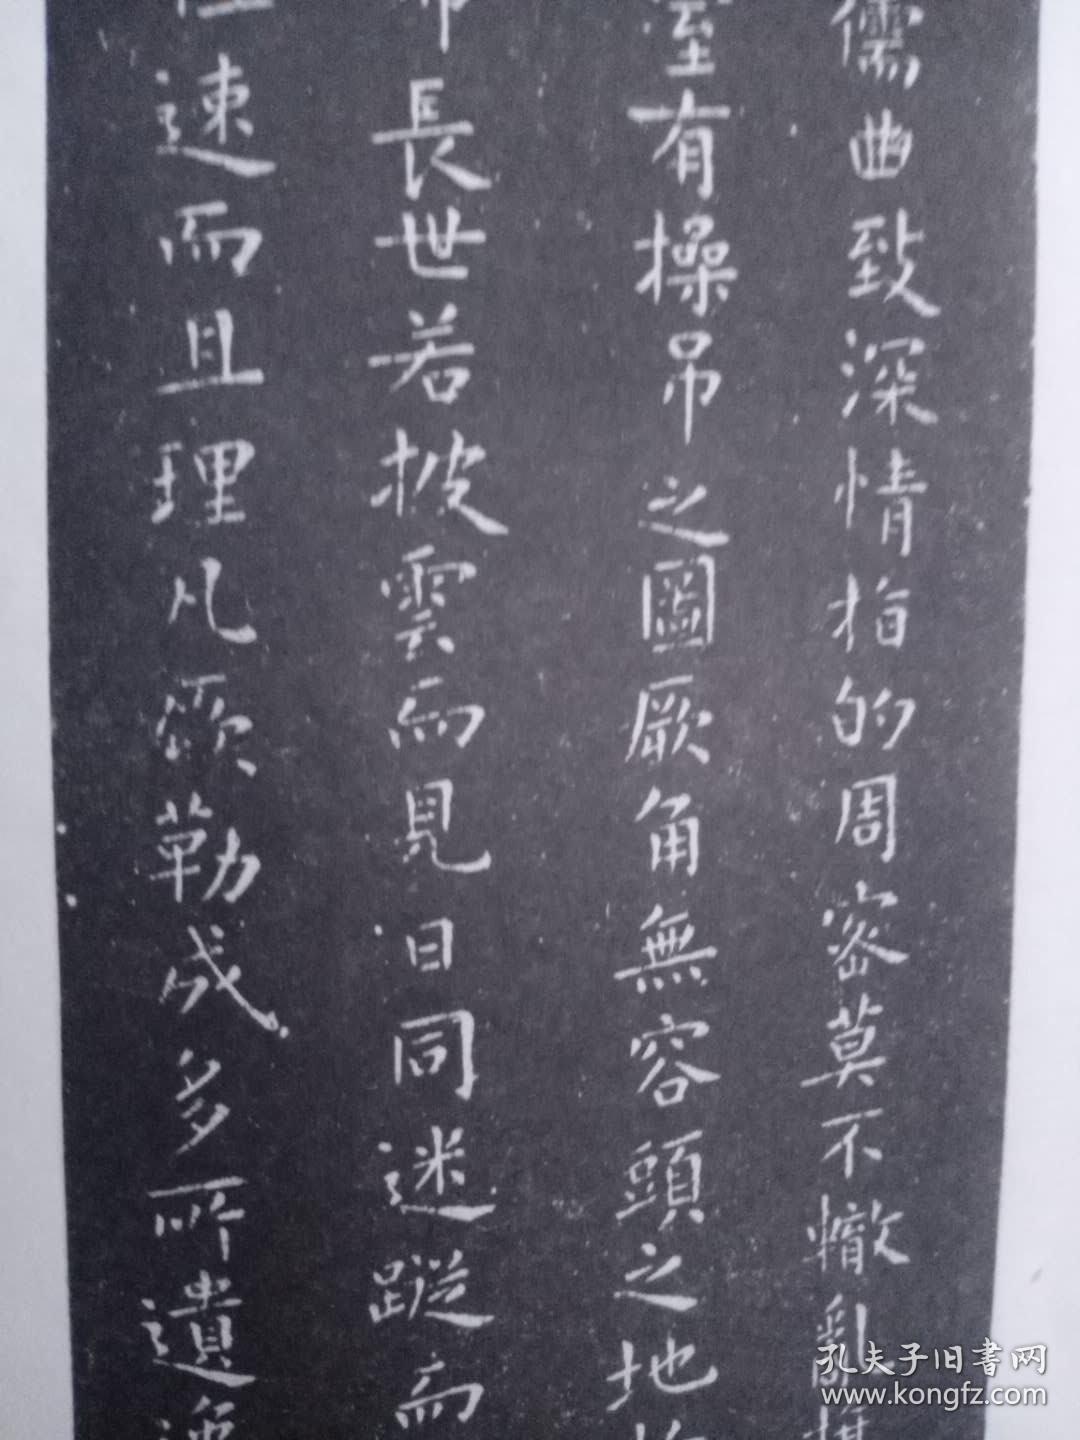 儒曲致深情指的周密莫不轍亂
室有操吊之圖厥角無容頭之地
長世若披雲而見日同迷蹤而
速而且理凡頌勒成多所遺逸
孔夫子旧書网
www.kongfz.com